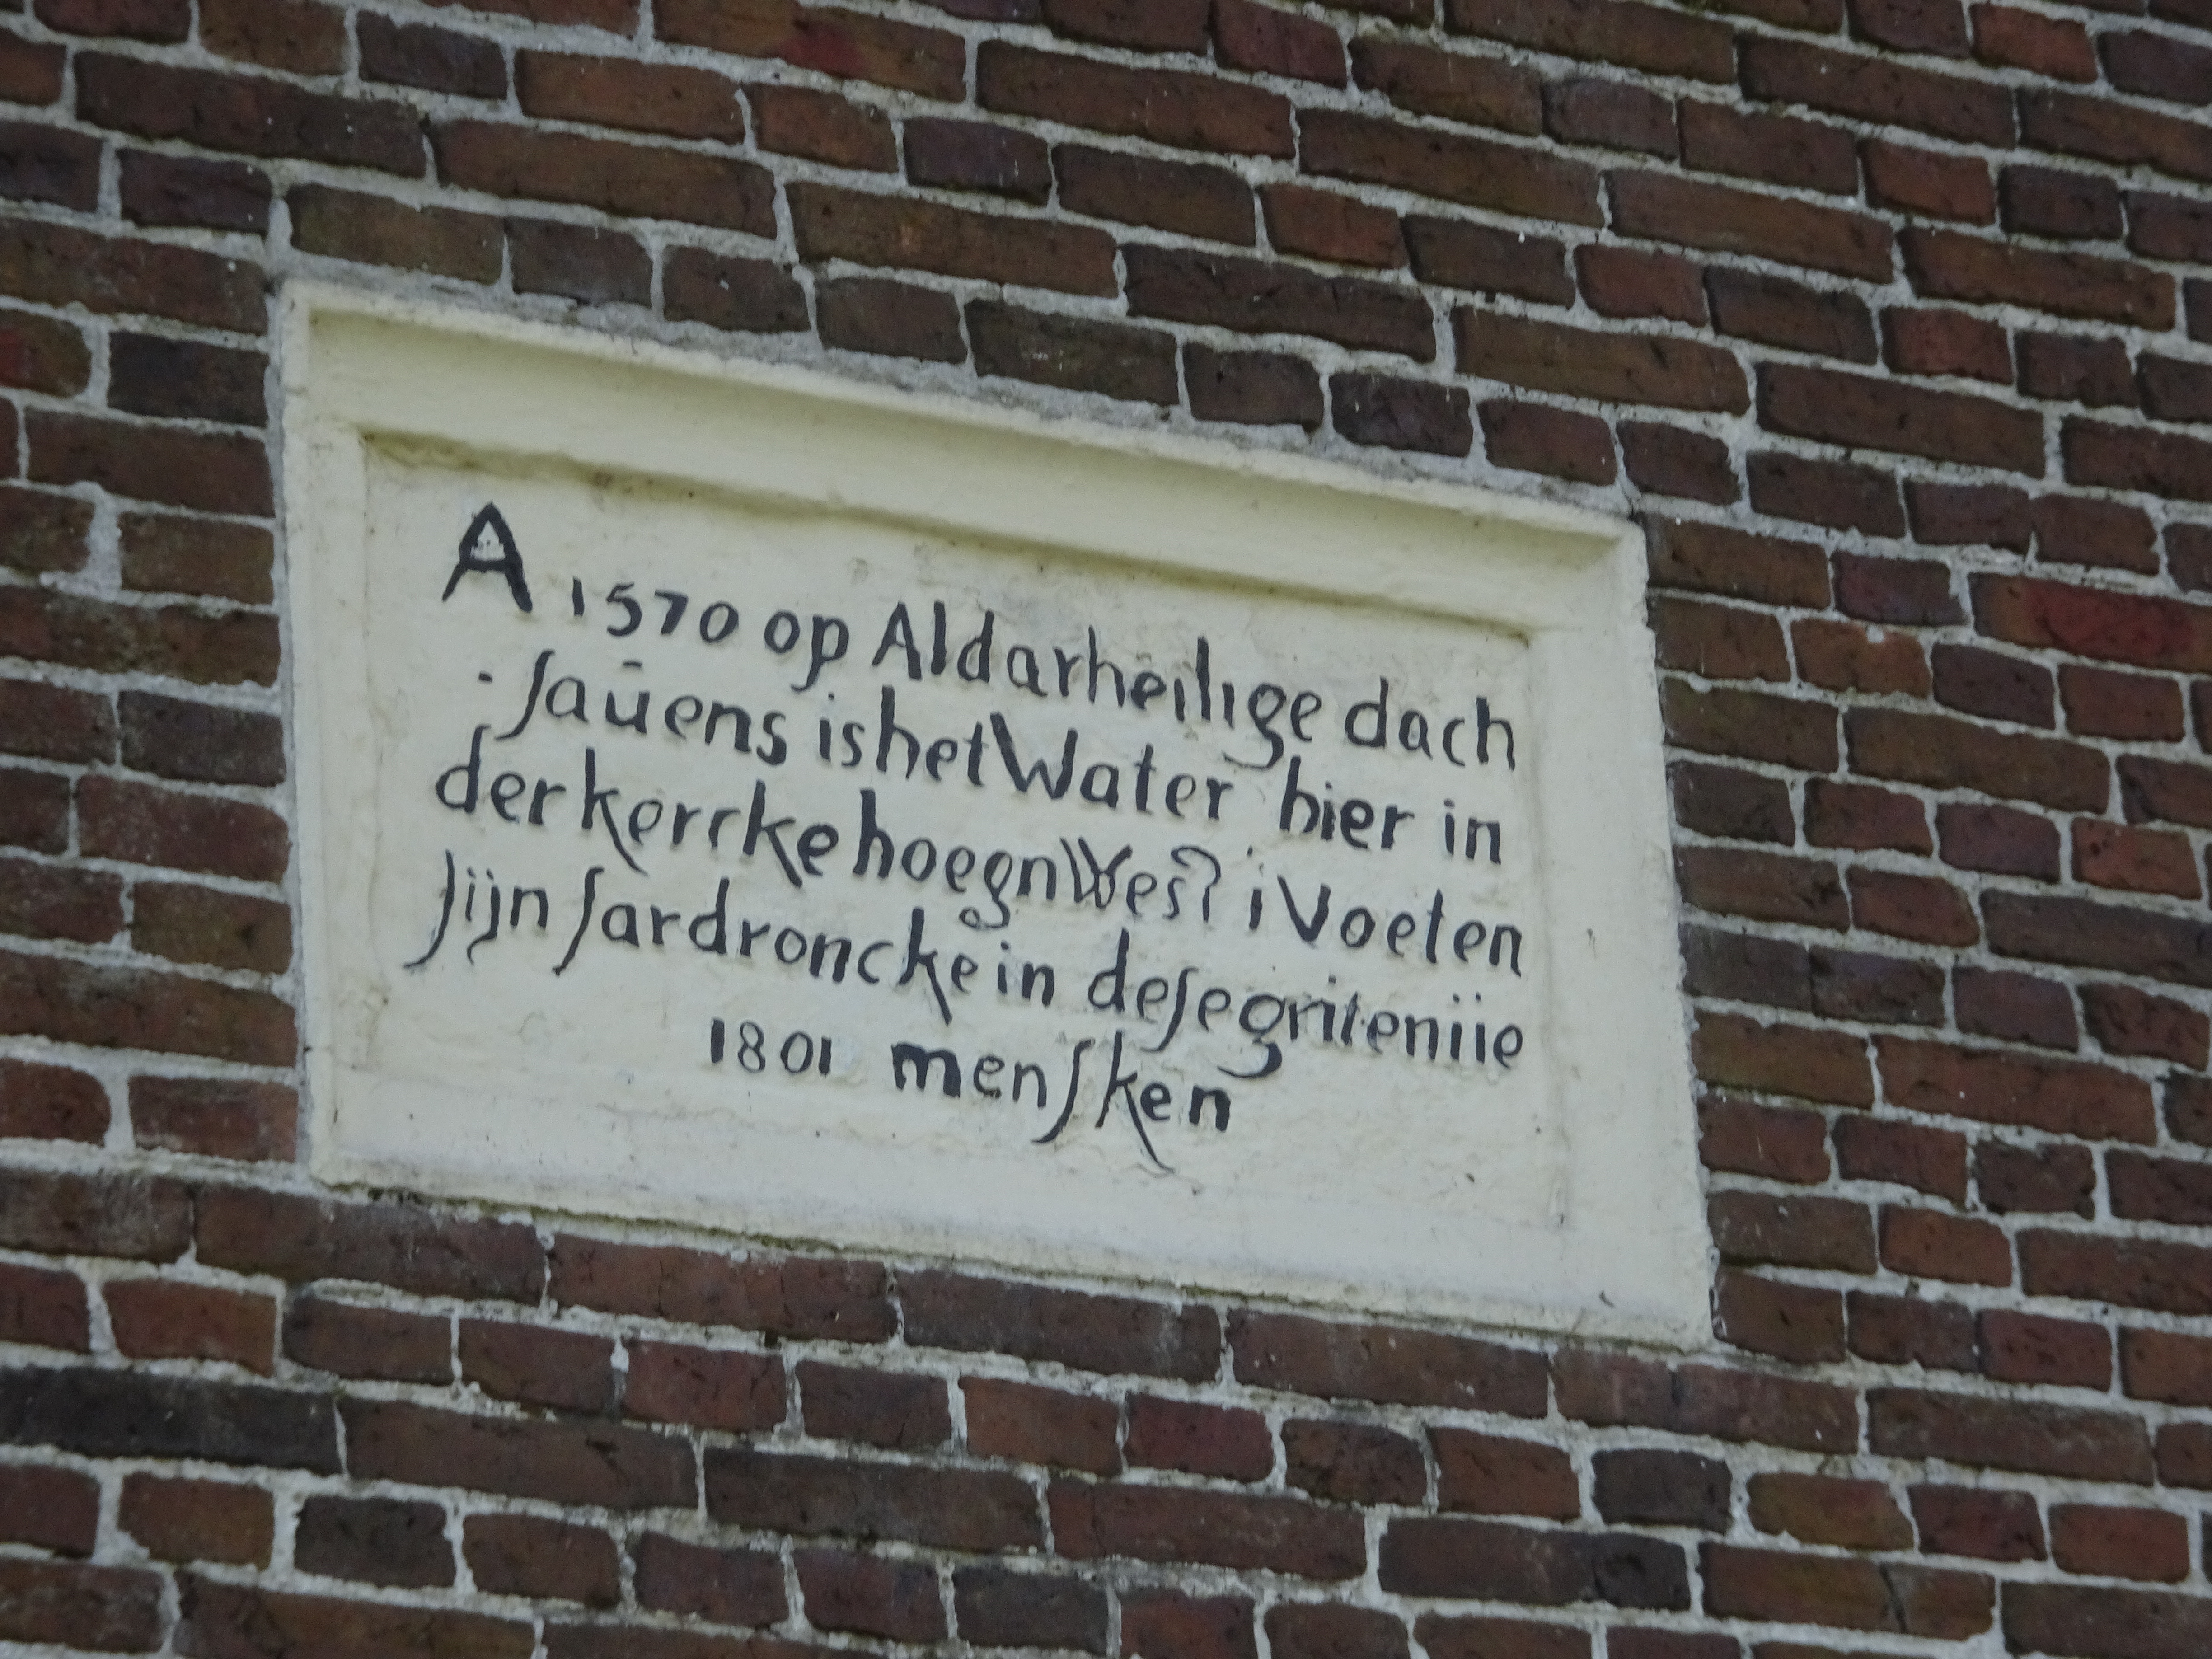 A 1570 op Aldarheilige dach
· ſaūens is het Water hier in
der kercke hoegn West i Voeten
ſijn ſardroncke in deſe griteniie
1801 menſken